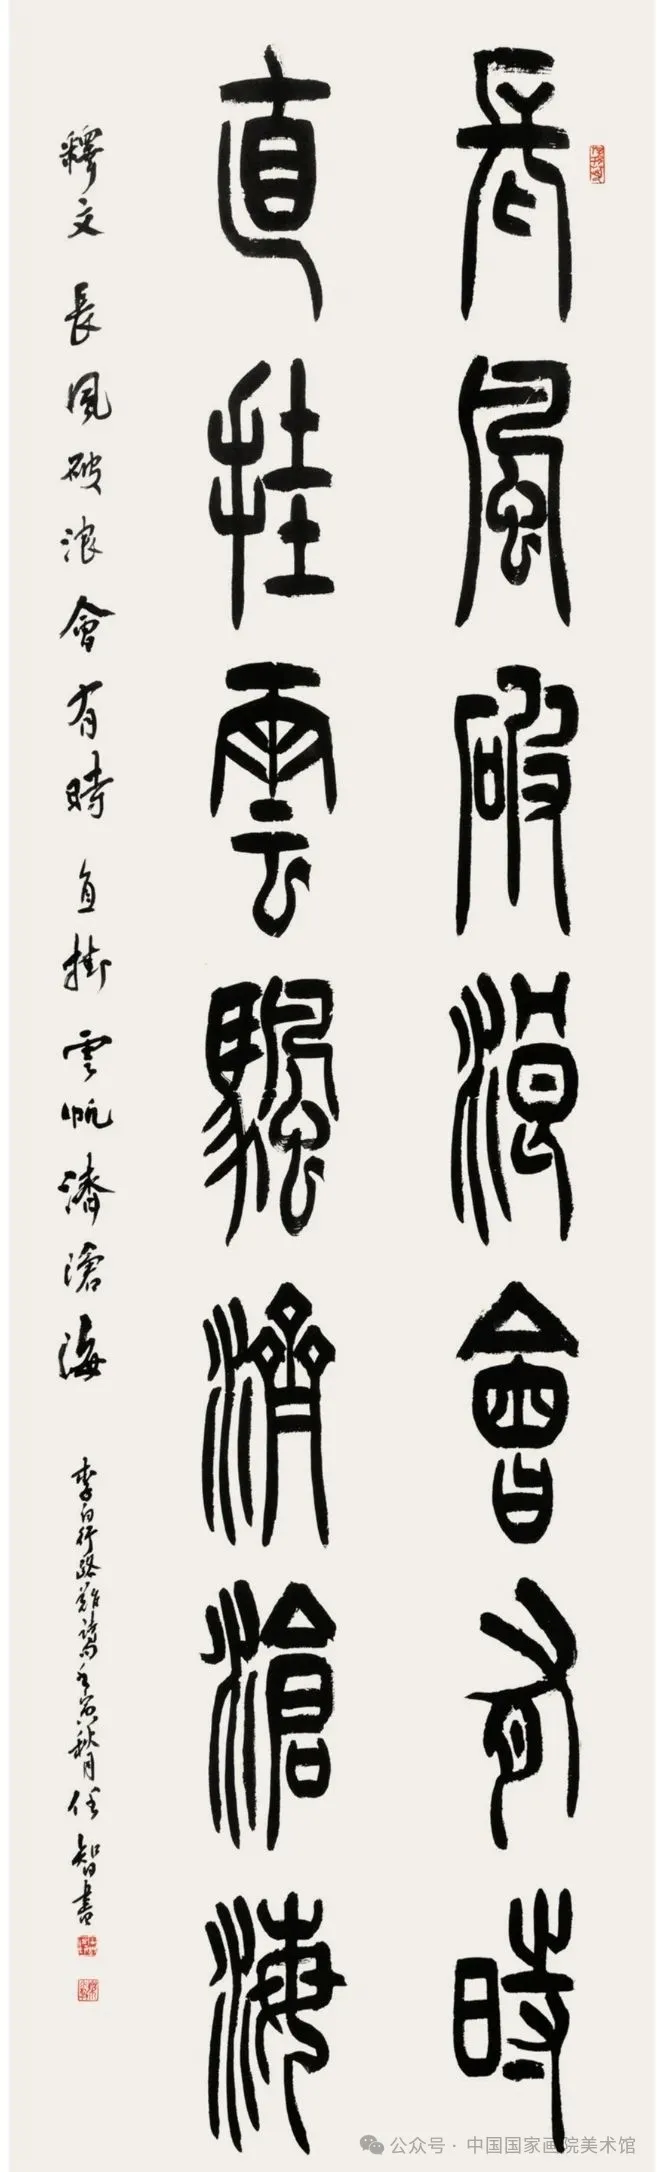 長風破浪會有時
直挂雲颿濟滄海
釋文 長風破浪會有時 直掛雲帆濟滄海
李白行路難詩句壬寅秋月任智書
公众号 · 中国国家画院美术馆